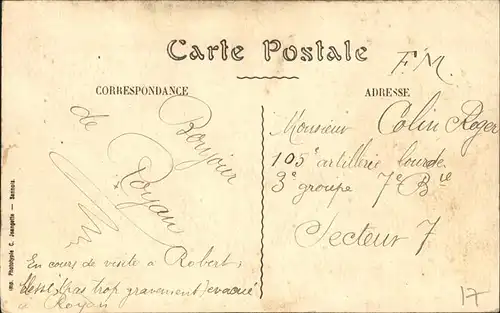 Carte Postale
F.M.
CORRESPONDANCE
ADRESSE
Bonjour
de Royan
En cours de visite à Robert,
blessé (pas trop gravement) évacué
à Royan
Monsieur Colin Roger
105e artillerie lourde
3e groupe 7e Bie
Secteur 7
Imp. Phototypie C. Jeangette - Sannois.
17